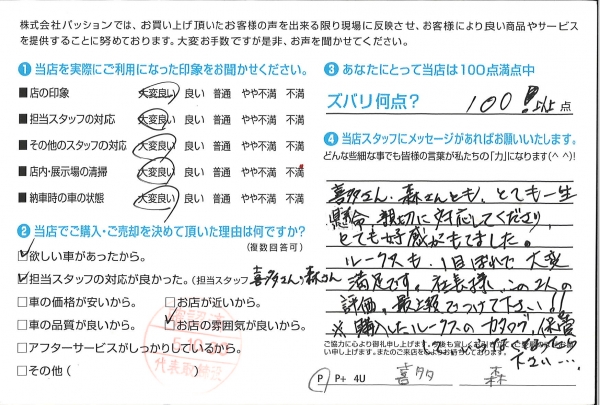 株式会社パッションでは、お買い上げ頂いたお客様の声を出来る限り現場に反映させ、お客様により良い商品やサービス
を提供することに努めております。大変お手数ですが是非、お声を聞かせてください。
❶ 当店を実際にご利用になった印象をお聞かせください。
■店の印象 大変良い 良い 普通 やや不満 不満
■担当スタッフの対応 大変良い 良い 普通 やや不満 不満
■その他のスタッフの対応 大変良い 良い 普通 やや不満 不満
■店内・展示場の清掃 大変良い 良い 普通 やや不満 不満
■納車時の車の状態 大変良い 良い 普通 やや不満 不満
❷ 当店でご購入・ご売却を決めて頂いた理由は何ですか?
(複数回答可)
☑欲しい車があったから。
☑担当スタッフの対応が良かった。(担当スタッフ 喜多さん、森さん
□車の価格が安いから。 □お店が近いから。
□車の品質が良いから。 ☑お店の雰囲気が良いから。
□アフターサービスがしっかりしているから。
□その他( )
代表取締役
❸ あなたにとって当店は100点満点中
ズバリ何点? 100!以上 点
❹ 当店スタッフにメッセージがあればお願いいたします。
どんな些細な事でも皆様の言葉が私たちの「力」になります(^ ^)!
喜多さん、森さんとも、とても一生
懸命、親切に対応してくださり、
とても好感がもてました。
ルークスも、1目ぼれで大変
満足です。社長様、この2人の
評価、最上級でつけて下さい!!
※購入したルークスのカタログ、保管
下さい…
ご協力に心より御礼申し上げます。今後も宜しくお引き立ての程お願
い申し上げます。またのご来店を心よりお待ちしております。
P P+ 4U 喜多 森